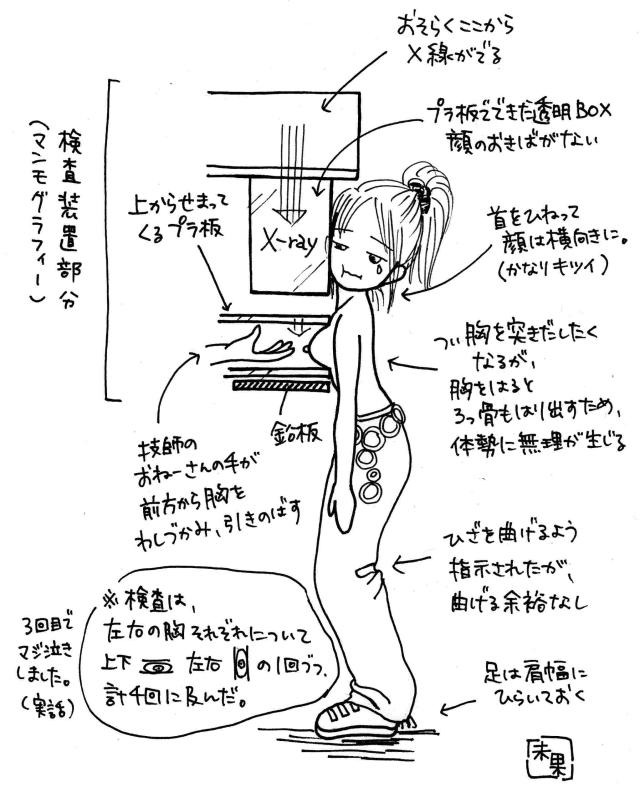 おそらくここから
X線がでる
プラ板でできた透明BOX
顔のおきばがない
検査装置部分
(マンモグラフィー)
上からせまって
くるプラ板
X-ray
首をひねって
顔は横向きに。
(かなりキツイ)
つい胸を突きだしたく
なるが、
胸をはると
ろっ骨もはり出すため、
体勢に無理が生じる
鉛板
技師の
おねーさんの手が
前方から胸を
わしづかみ、引きのばす
ひざを曲げるよう
指示されたが、
曲げる余裕なし
※検査は、
左右の胸それぞれについて
上下 左右 の1回づつ、
計4回に及んだ。
3回目で
マジ泣き
しました。
(実話)
足は肩幅に
ひらいておく
未果